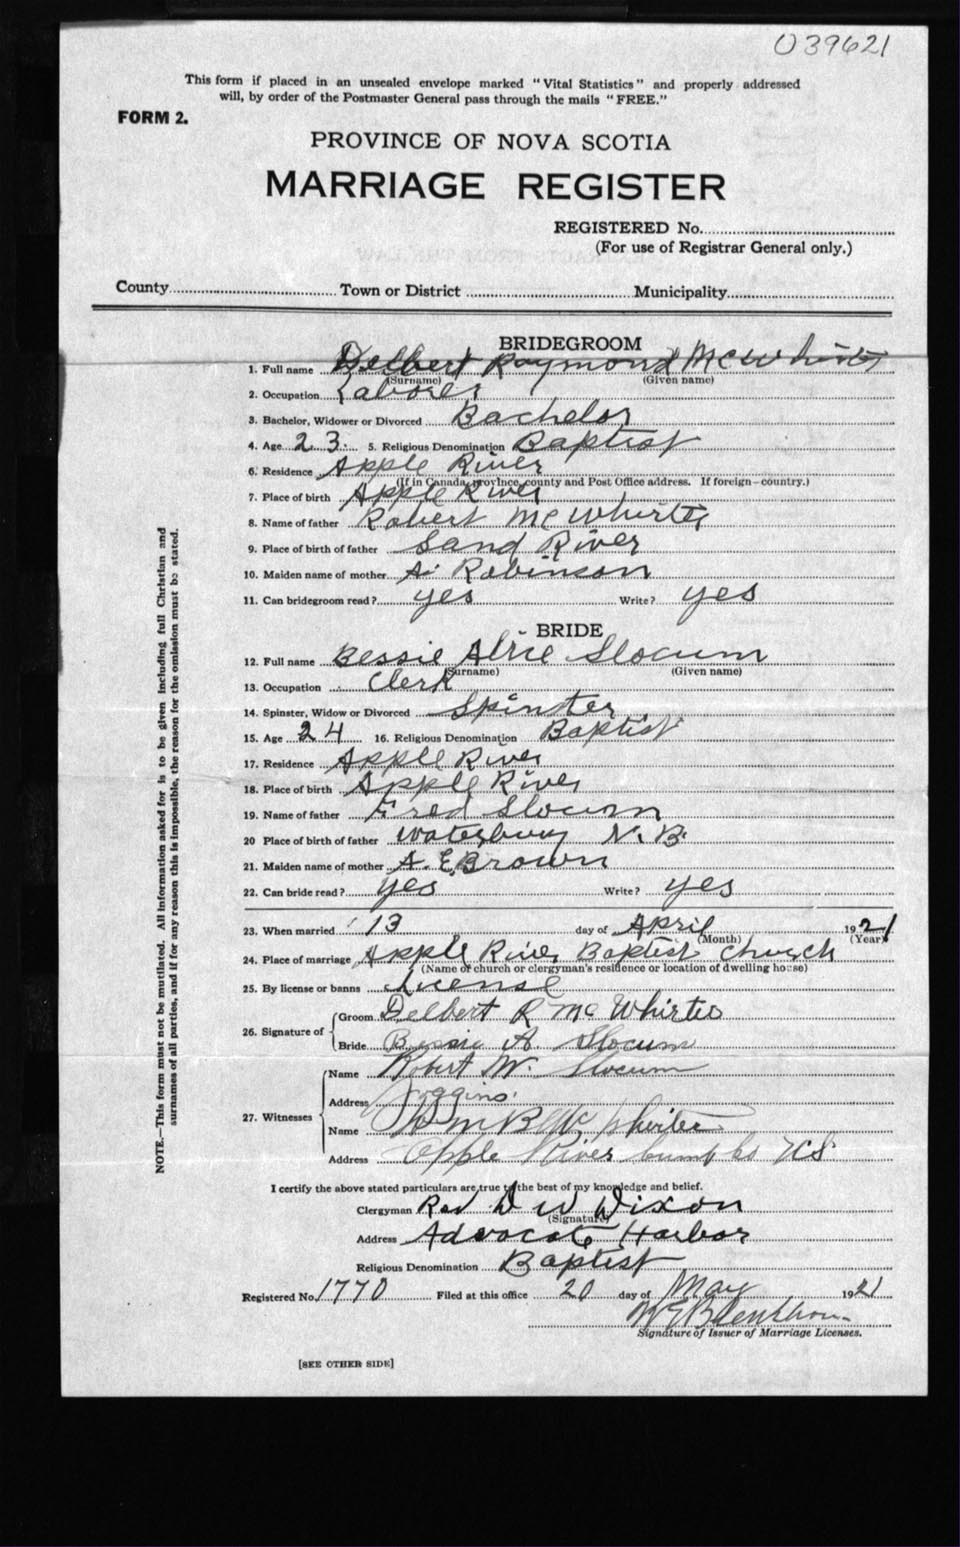 039621
This form if placed in an unsealed envelope marked "Vital Statistics" and properly addressed
will, by order of the Postmaster General pass through the mails "FREE."
FORM 2.
PROVINCE OF NOVA SCOTIA
MARRIAGE REGISTER
REGISTERED No.
(For use of Registrar General only.)
County Town or District Municipality
BRIDEGROOM
1. Full name Delbert Raymond McWhirter
(Surname) (Given name)
2. Occupation Laborer
3. Bachelor, Widower or Divorced Bachelor
4. Age 23. 5. Religious Denomination Baptist
6. Residence Apple River
(If in Canada, province, county and Post Office address. If foreign—country.)
7. Place of birth Apple River
8. Name of father Robert McWhirter
9. Place of birth of father Sand River
10. Maiden name of mother A. Robinson
11. Can bridegroom read? yes Write? yes
BRIDE
12. Full name Bessie Slocum
(Surname) (Given name)
13. Occupation Clerk
14. Spinster, Widow or Divorced Spinster
15. Age 24 16. Religious Denomination Baptist
17. Residence Apple River
18. Place of birth Apple River
19. Name of father Fred Slocum
20 Place of birth of father Waterbury N.B.
21. Maiden name of mother A. E. Brown
22. Can bride read? yes Write? yes
23. When married 13 day of April 1921
(Month) (Year)
24. Place of marriage Apple River Baptist Church
(Name of church or clergyman's residence or location of dwelling house)
25. By license or banns License
26. Signature of Groom Delbert R McWhirter
Bride Bessie A. Slocum
27. Witnesses Name Robert W. Slocum
Address Joggins
Name Wm B McWhirter
Address Apple River Cumb Co NS
I certify the above stated particulars are true to the best of my knowledge and belief.
Clergyman Rev D W Dixon
(Signature)
Address Advocate Harbor
Religious Denomination Baptist
Registered No. 1770 Filed at this office 20 day of May 1921
Signature of Issuer of Marriage Licenses.
[SEE OTHER SIDE]
NOTE.—This form must not be mutilated. All information asked for is to be given including full Christian and
surnames of all parties, and if for any reason this is impossible, the reason for the omission must be stated.